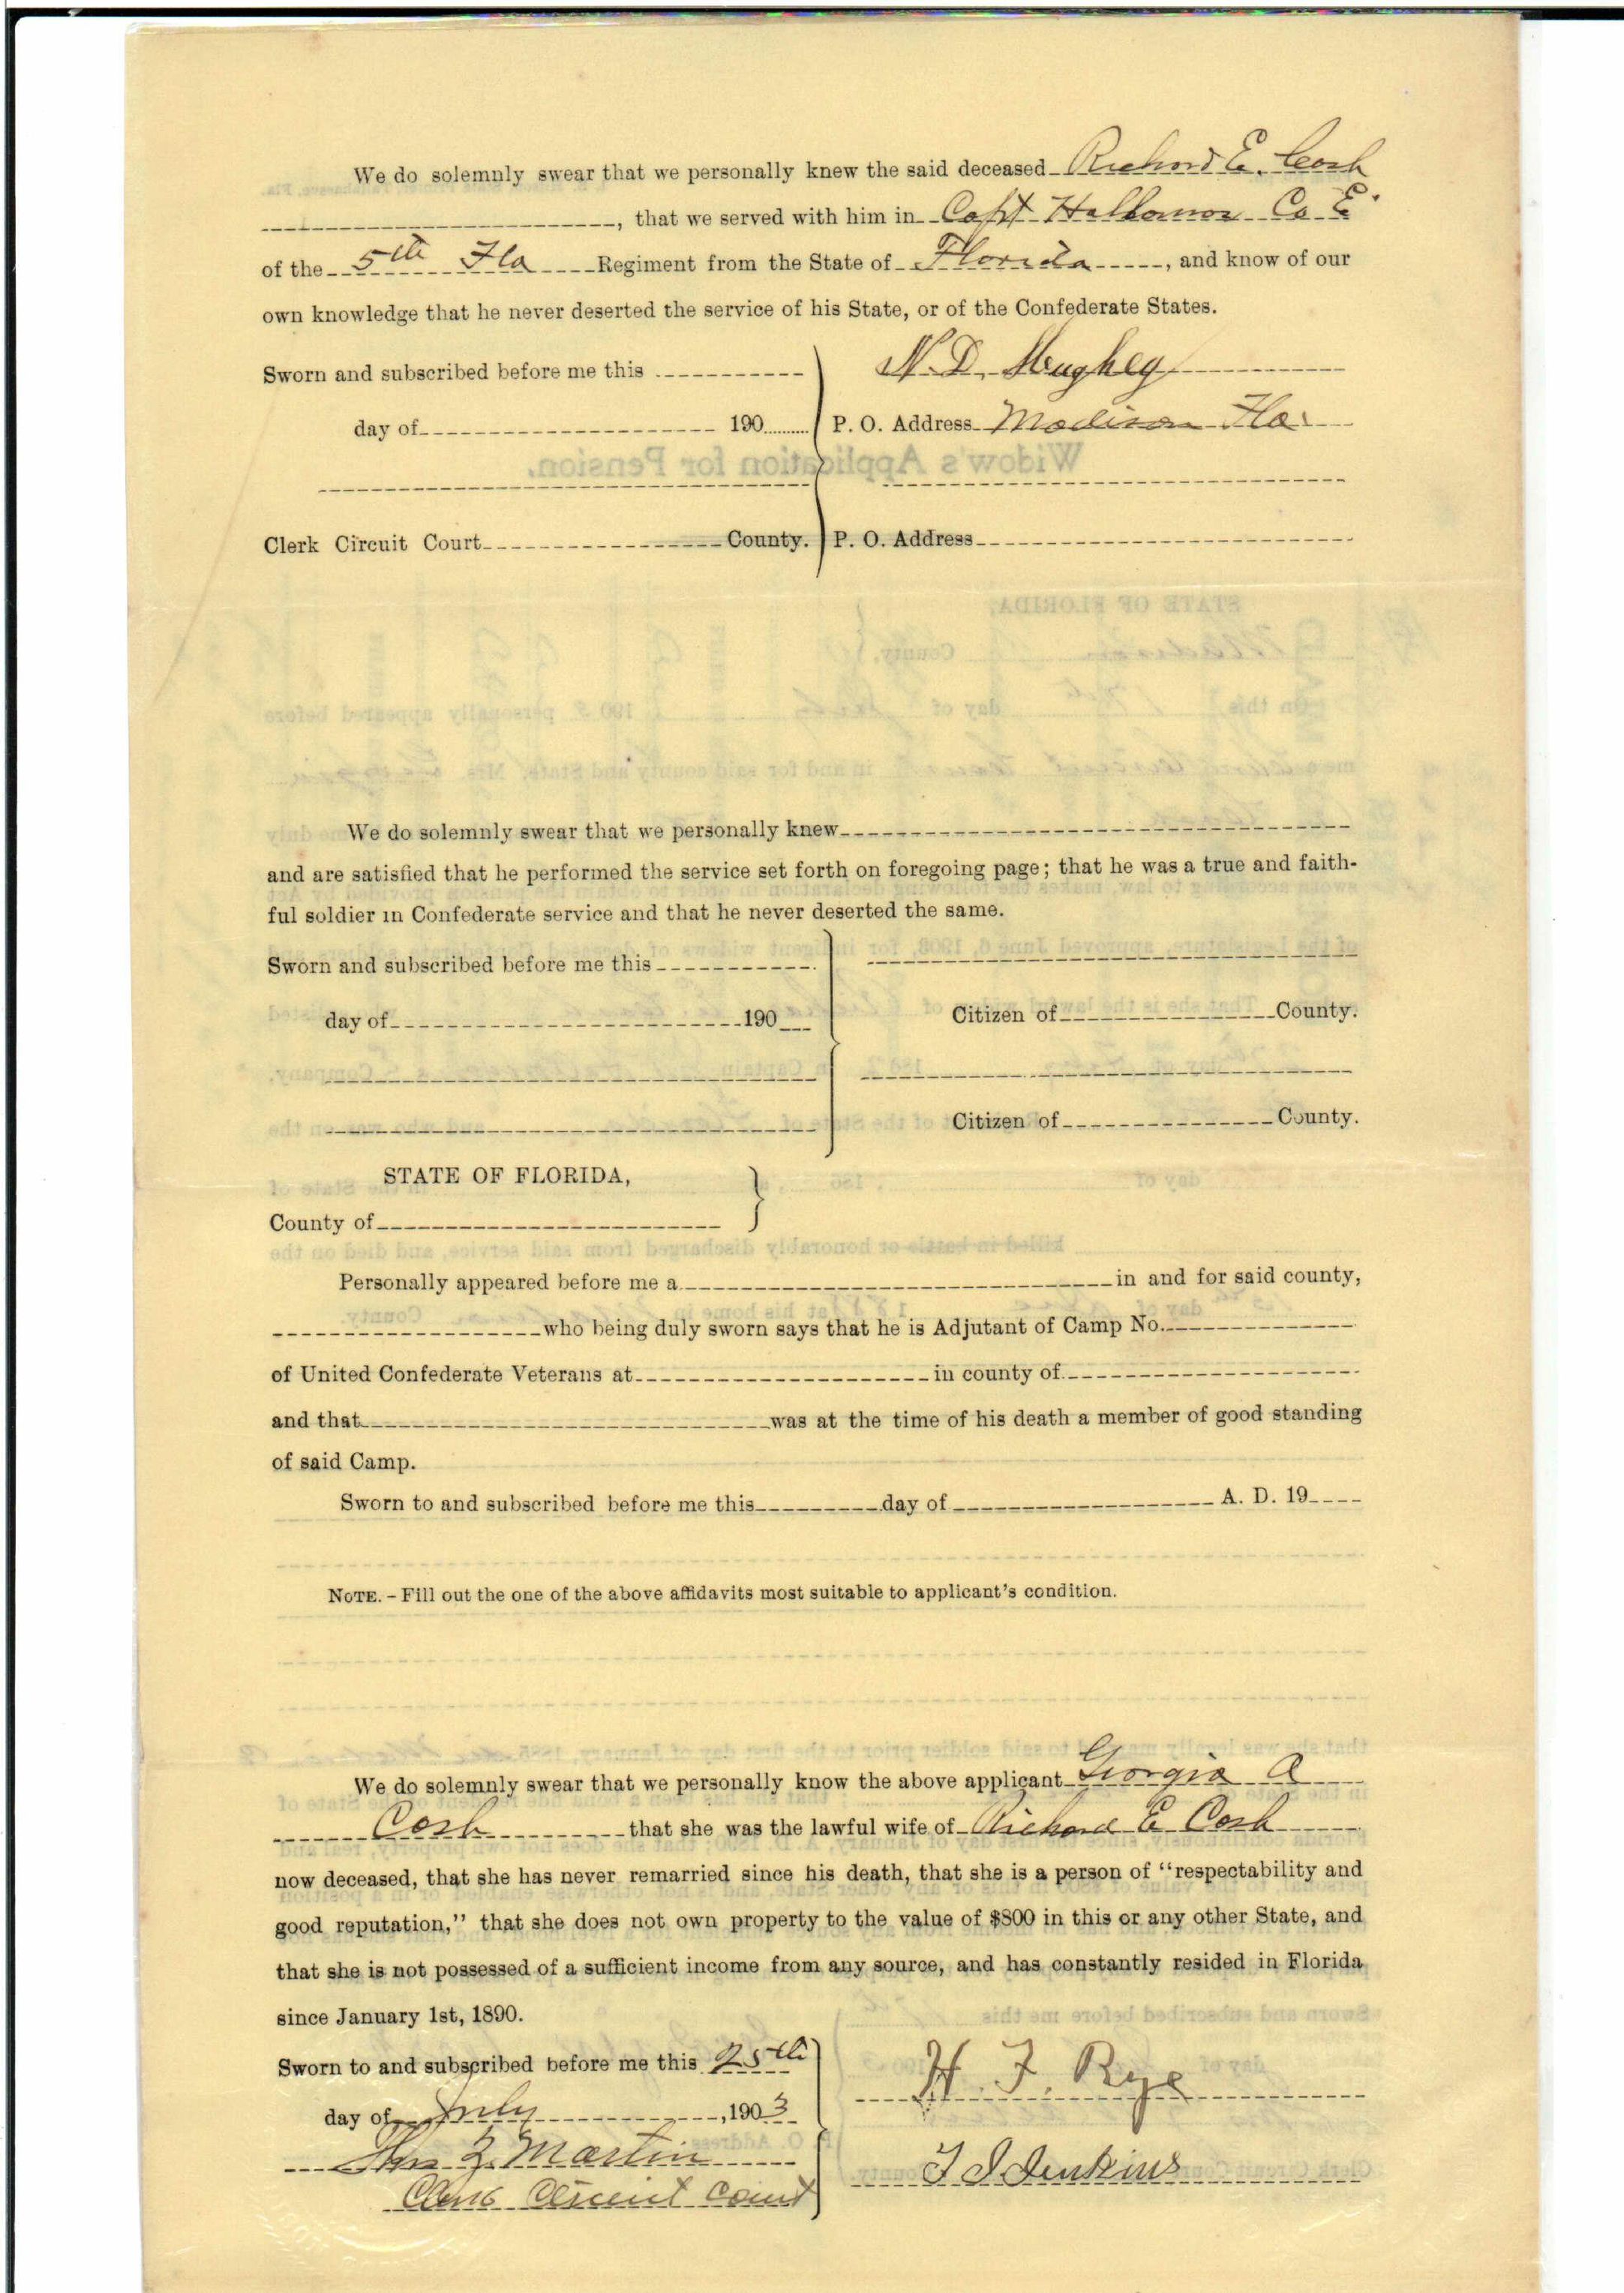 We do solemnly swear that we personally knew the said deceased Richard E. Cosh
, that we served with him in Capt Co E
of the 5th Fla Regiment from the State of Florida, and know of our
own knowledge that he never deserted the service of his State, or of the Confederate States.
Sworn and subscribed before me this N. D. Hughey
day of 190 P. O. Address Madison Fla.
Widow's Application for Pension.
Clerk Circuit Court County. P. O. Address
STATE OF FLORIDA,
County,
We do solemnly swear that we personally knew
and are satisfied that he performed the service set forth on foregoing page; that he was a true and faith-
ful soldier in Confederate service and that he never deserted the same.
Sworn and subscribed before me this
day of 190 Citizen of County.
Citizen of County.
STATE OF FLORIDA,
County of
Personally appeared before me a in and for said county,
who being duly sworn says that he is Adjutant of Camp No.
of United Confederate Veterans at in county of
and that was at the time of his death a member of good standing
of said Camp.
Sworn to and subscribed before me this day of A. D. 19
NOTE. - Fill out the one of the above affidavits most suitable to applicant's condition.
We do solemnly swear that we personally know the above applicant Georgia A
Cosh that she was the lawful wife of Richard E Cosh
now deceased, that she has never remarried since his death, that she is a person of "respectability and
good reputation," that she does not own property to the value of $800 in this or any other State, and
that she is not possessed of a sufficient income from any source, and has constantly resided in Florida
since January 1st, 1890.
Sworn to and subscribed before me this 25th H. F. Rye
day of July, 1903
Martin T J Jenkins
Clerk Circuit Court